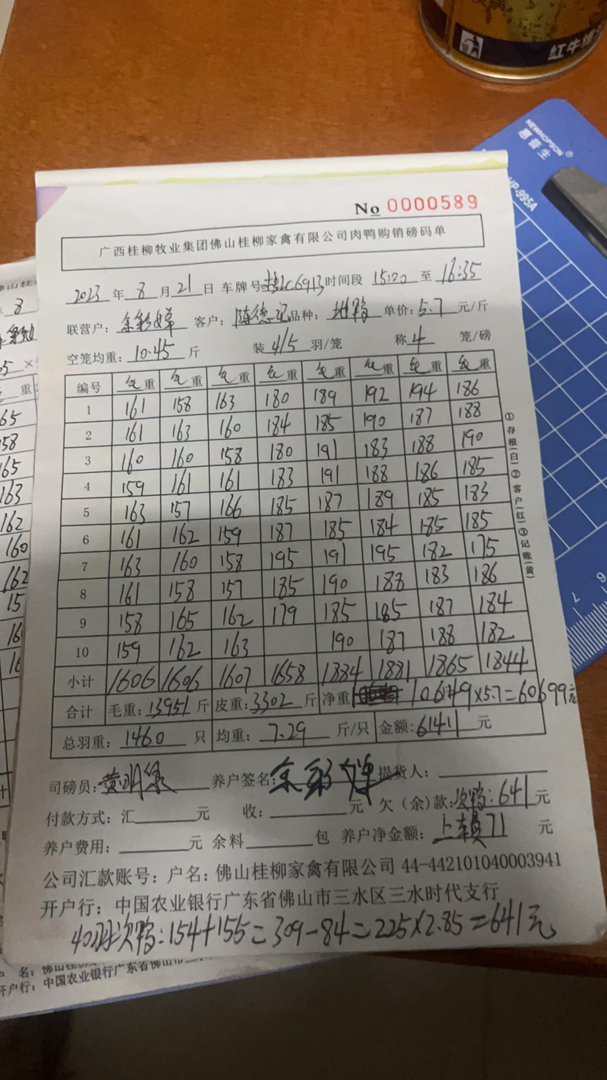 红牛
NEWMOFSON®
惠普生
HP-995A
No 0000589
广西桂柳牧业集团佛山桂柳家禽有限公司肉鸭购销磅码单
2023 年 8 月 21 日 车牌号 C6913 时间段 15:20 至 16:35
联营户: 客户: 陈德 品种: 鸭 单价: 5.7 元/斤
空笼均重: 10.45 斤 装 4/5 羽/笼 称 4 笼/磅
编号 毛重 毛重 毛重 毛重 毛重 毛重 毛重 毛重
1 161 158 163 180 189 192 194 186
2 161 163 160 184 185 190 187 188
3 160 160 158 180 191 183 188 190
4 159 161 161 183 191 188 186 185
5 163 157 166 185 187 189 185 183
6 161 162 159 187 185 184 185 185
7 163 160 158 195 191 195 182 175
8 161 158 157 185 190 188 183 186
9 158 165 162 179 185 185 187 184
10 159 162 163 190 187 188 182
小计 1606 1606 1607 1658 1884 1881 1865 1844
合计 毛重: 13951 斤 皮重: 3302 斤 净重 10649×5.7=60699元
总羽重: 1460 只 均重: 7.29 斤/只 金额: 6141 元
①存根(白)②客户(红)③记账(黄)
司磅员: 黄明 养户签名: 余彩 提货人:
付款方式: 汇 元 收: 元 欠(余)款: 次鸭:641 元
养户费用: 元 余料 包 养户净金额: 71 元
公司汇款账号: 户名: 佛山桂柳家禽有限公司 44-442101040003941
开户行: 中国农业银行广东省佛山市三水区三水时代支行
40羽次鸭:154+155=309-84=225×2.85=641元
开户行: 中国农业银行广东省佛山市三